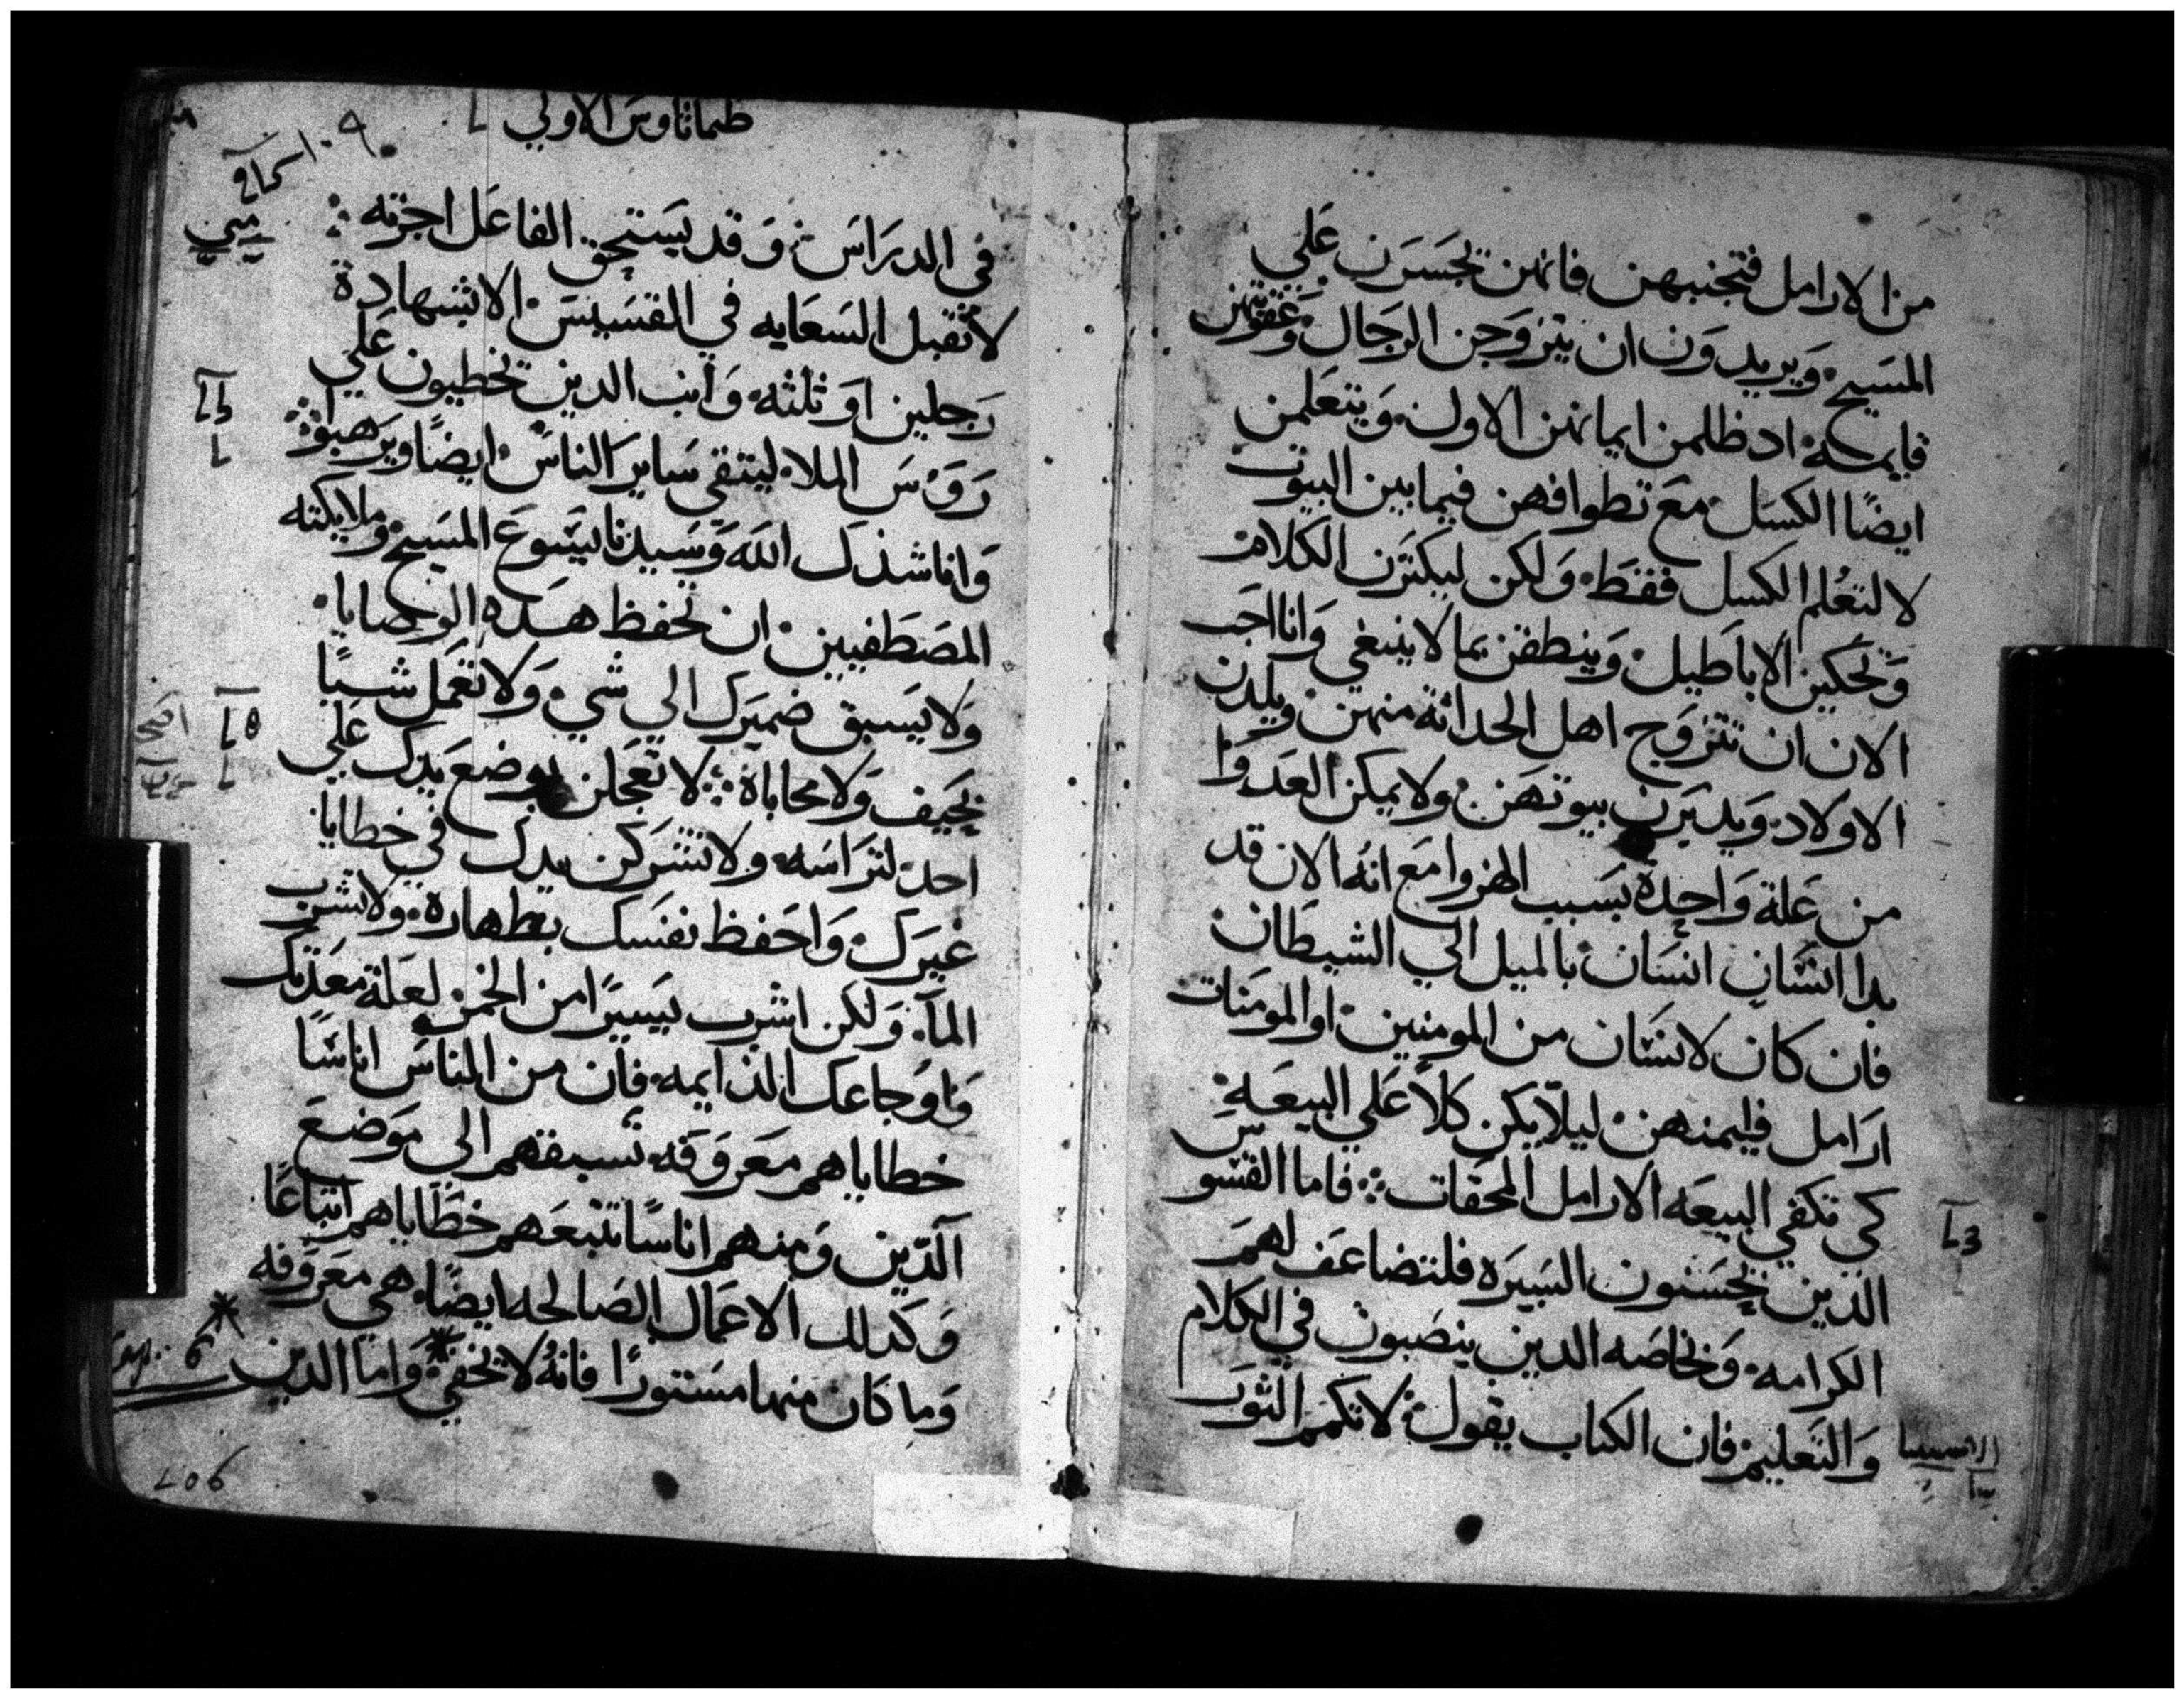 من الارامل فتجنبهن فانهن يجسرن علي
المسيح ويريدون ان يتزوجن الرجال وعقوبتهن
قايمة اد ظلمن ايمانهن الاول ويتعلمن
ايضًا الكسل مع تطوافهن فيما بين البيوت
لا لتعلم الكسل فقط ولكن ليكثرن الكلام
وتحكين الاباطيل وينطقن بما لا ينبغي وانا احب
الان ان تتزوج اهل الحداثة منهن ويلدن
الاولاد ويديرن بيوتهن ولا يمكن العدوا
من علة واحدة بسبب الهزوا مع انه الان قد
بدا انسان انسان بالميل الي الشيطان
فان كان لانسان من المومنين او المومنات
ارامل فليمنهن ليلا يكن كلاً علي البيعة
كي تكفي البيعه الارامل المحقات فاما القسوس
الذين يحسنون السيره فلتضاعف لهم
الكرامه وبخاصه الدين ينصبون في الكلام
والتعليم فان الكتاب يقول لا تكمم الثور
طماثاوس الاولي
في الدراس وقد يستحق الفاعل اجرته
لا تقبل السعايه في القسيس الا بشهادة
رجلين او ثلثه وانب الدين يخطيون علي
روس الملا ليتقي ساير الناس ايضًا ويرهبوا
وانا شذك الله وسيدنا يسوع المسيح وملايكته
المصطفيين ان تحفظ هده الوصايا
ولا يسبق ضميرك الي شي ولا تعمل شيًا
بحيف ولا محاباة لا تعجلن بوضع يدك علي
احد لتراسه ولا تشركن يدك في خطايا
غيرك واحفظ نفسك بطهاره ولا تشرب
المآ ولكن اشرب يسيرًا من الخمر لعلة معدتك
واوجاعك الدايمه فان من الناس اناسًا
خطاياهم معروفه تسبقهم الي موضع
الدين ومنهم اناسًا تتبعهم خطاياهم اتباعًا
وكدلك الاعمال الصالحه ايضًا هي معروفه
وما كان منها مستورًا فانه لا يخفي واما الدين